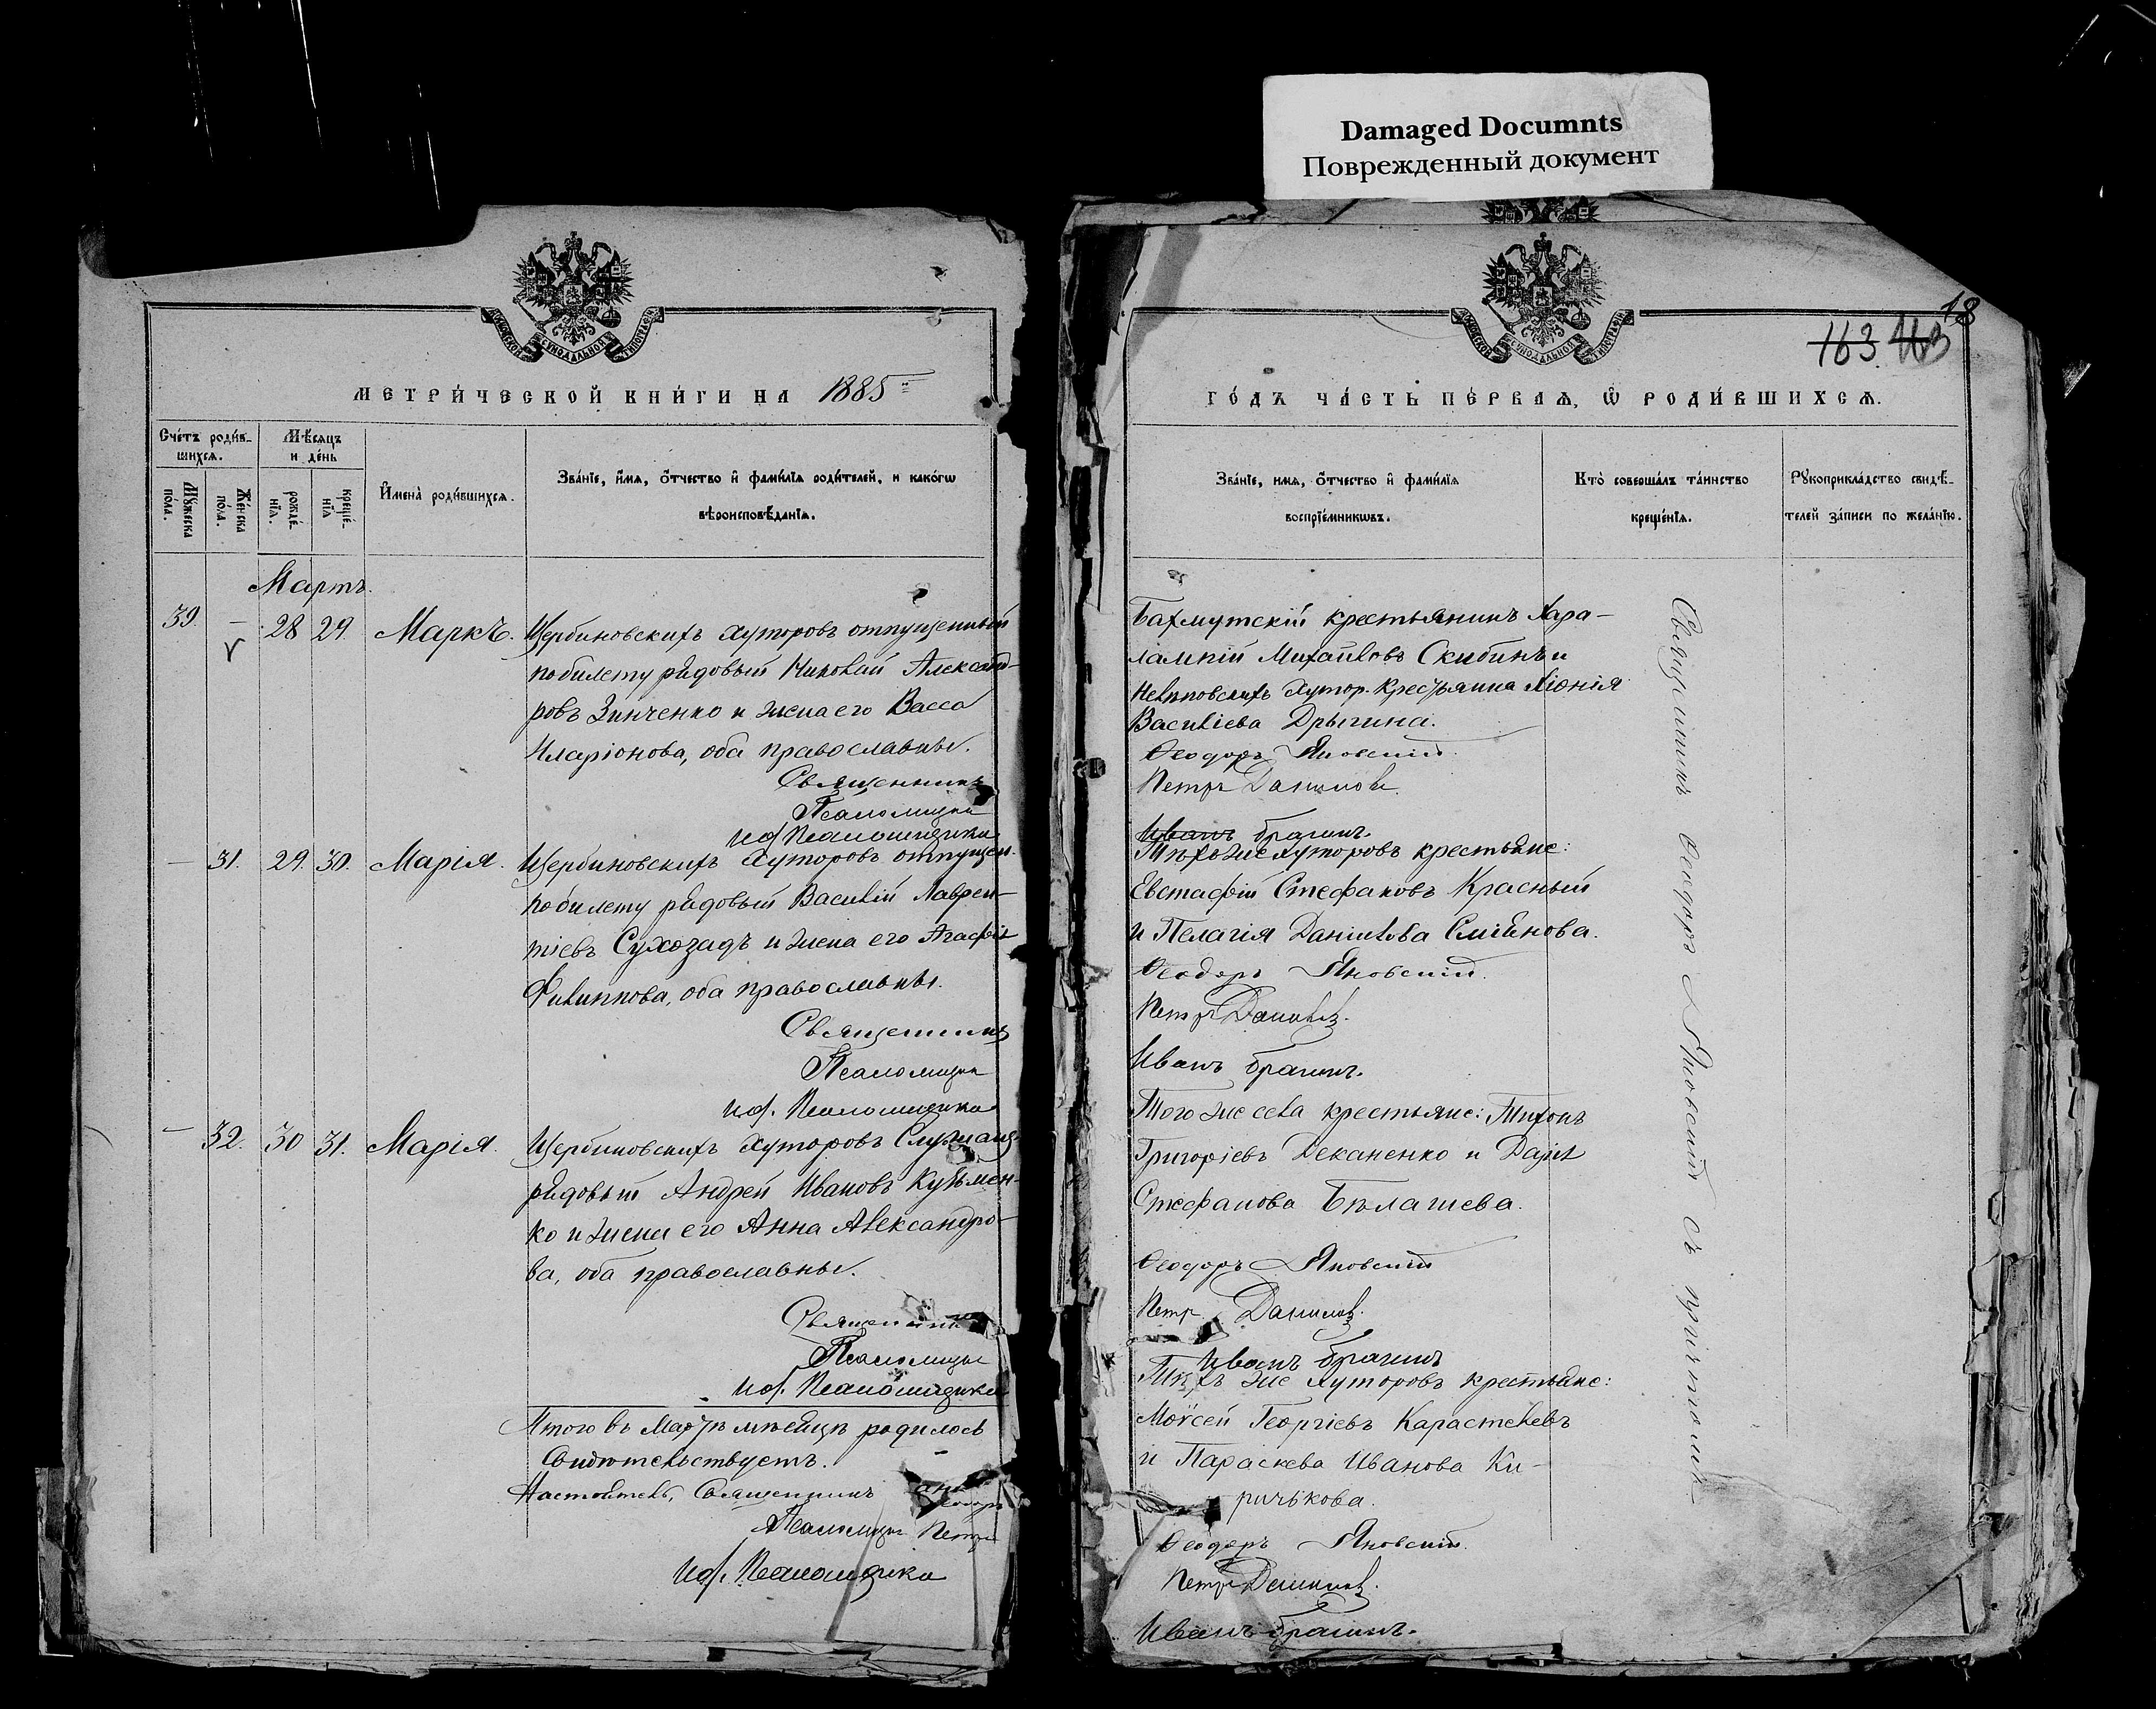 Damaged Documnts
Поврежденный документ
МЕТРИЧЕСКОЙ КНИГИ НА 1885
Счетъ родив-
шихся.
Мѣсяцъ
и день
Мужеска
пола.
Женска
пола.
рожде-
нія.
креще-
нія
Имена родившихся.
Званіе, имя, отчество и фамилія родителей, и какогѡ
вѣроисповѣданія.
Мартъ.
39. — 28 29. Маркъ. Щербиновскихъ хуторовъ отпущенный
по билету рядовый Николай Александ-
ровъ Зинченко и жена его Васса
Иларіонова, оба православные.
Священникъ
Псаломщикъ
И. д. Псаломщика
— 31. 29. 30. Марія. Щербиновскихъ хуторовъ отпущен.
по билету рядовый Василій Лаврен-
тіевъ Сухозадъ и жена его Агафія
Филиппова, оба православные.
Священникъ
Псаломщикъ
И. д. Псаломщика
— 32. 30 31. Марія. Щербиновскихъ хуторовъ
рядовый Андрей Ивановъ Кузьмен-
ко и жена его Анна Александро-
ва, оба православные.
Священникъ
Псаломщикъ
И. д. Псаломщика
Итого въ Мартѣ мѣсяцѣ родилось
Свидѣтельствуетъ.
Настоятель, Священникъ
Псаломщикъ Петръ
И. д. Псаломщика
18
163. 163
ГОДЪ ЧАСТЬ ПЕРВАЯ, Ѿ РОДИВШИХСЯ.
Званіе, имя, отчество и фамилія
воспріемникωвъ.
Кто совершалъ таинство
крещенія.
Рукоприкладство свидѣ-
телей записи по желанію.
Бахмутскій крестьянинъ Хара-
лампій Михайловъ Скибинъ и
хутор. крестьянка Хіонія
Василіева Дрыгина.
Ѳеодоръ Яновскій.
Петръ Даниловъ.
Иванъ Брагинъ.
Тѣхъ же хуторовъ крестьяне:
Евстафій Стефановъ Красный
и Пелагія Даніилова
Ѳеодоръ Яновскій.
Петръ Даниловъ.
Иванъ Брагинъ.
Того же села крестьяне: Тихонъ
Григоріевъ Деканенко и Дарія
Стефанова Бѣлашева.
Ѳеодоръ Яновскій
Петръ Даниловъ.
Иванъ Брагинъ
Тѣхъ же хуторовъ крестьяне:
Моѵсей Георгіевъ Карастелевъ
и Параскева Иванова Ки-
ричькова.
Ѳеодоръ Яновскій.
Петръ Даниловъ.
Иванъ Брагинъ.
Священникъ Ѳеодоръ Яновскій съ причтомъ